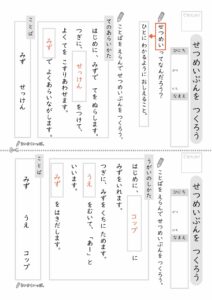 せつめいぶんを つくろう
がつ にち
なまえ
せつめいってなんだろう?
ひとに わかるように おしえること。
ことばを えらんで せつめいぶんを つくろう。
てのあらいかた
はじめに、みずで てを ぬらします。
つぎに、せっけん を つけて、
よくてを こすりあわせます。
みず で よくあらいながします。
ことば
みず せっけん
せつめいぶんを つくろう
がつ にち
なまえ
ことばを えらんで せつめいぶんを つくろう。
うがいのしかた
はじめに、コップ に
みずをいれます。
つぎに、みずを くちに ためます。
うえ をむいて、「あー」と
いいます。
みず を はきだします。
ことば
みず うえ コップ